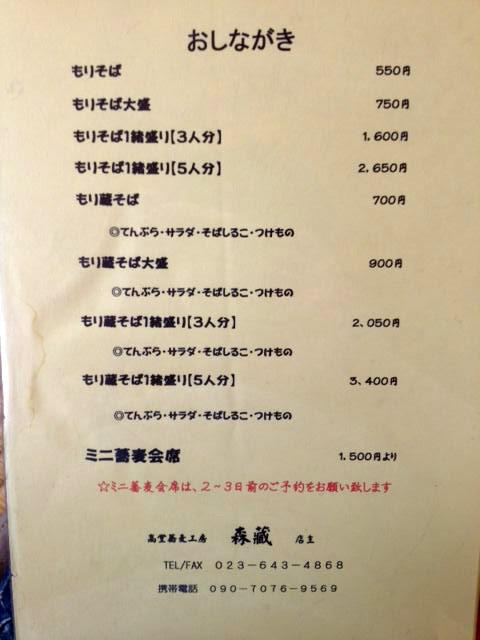 おしながき
もりそば 550円
もりそば大盛 750円
もりそば1緒盛り【3人分】 1,600円
もりそば1緒盛り【5人分】 2,650円
もり蔵そば 700円
◎てんぷら・サラダ・そばしるこ・つけもの
もり蔵そば大盛 900円
◎てんぷら・サラダ・そばしるこ・つけもの
もり蔵そば1緒盛り【3人分】 2、050円
◎てんぷら・サラダ・そばしるこ・つけもの
もり蔵そば1緒盛り【5人分】 3、400円
◎てんぷら・サラダ・そばしるこ・つけもの
ミニ蕎麦会席 1.500円より
☆ミニ蕎麦会席は、2~3日前のご予約をお願い致します
高堂蕎麦工房 森蔵 店主
TEL/FAX 023-643-4868
携帯電話 090-7076-9569